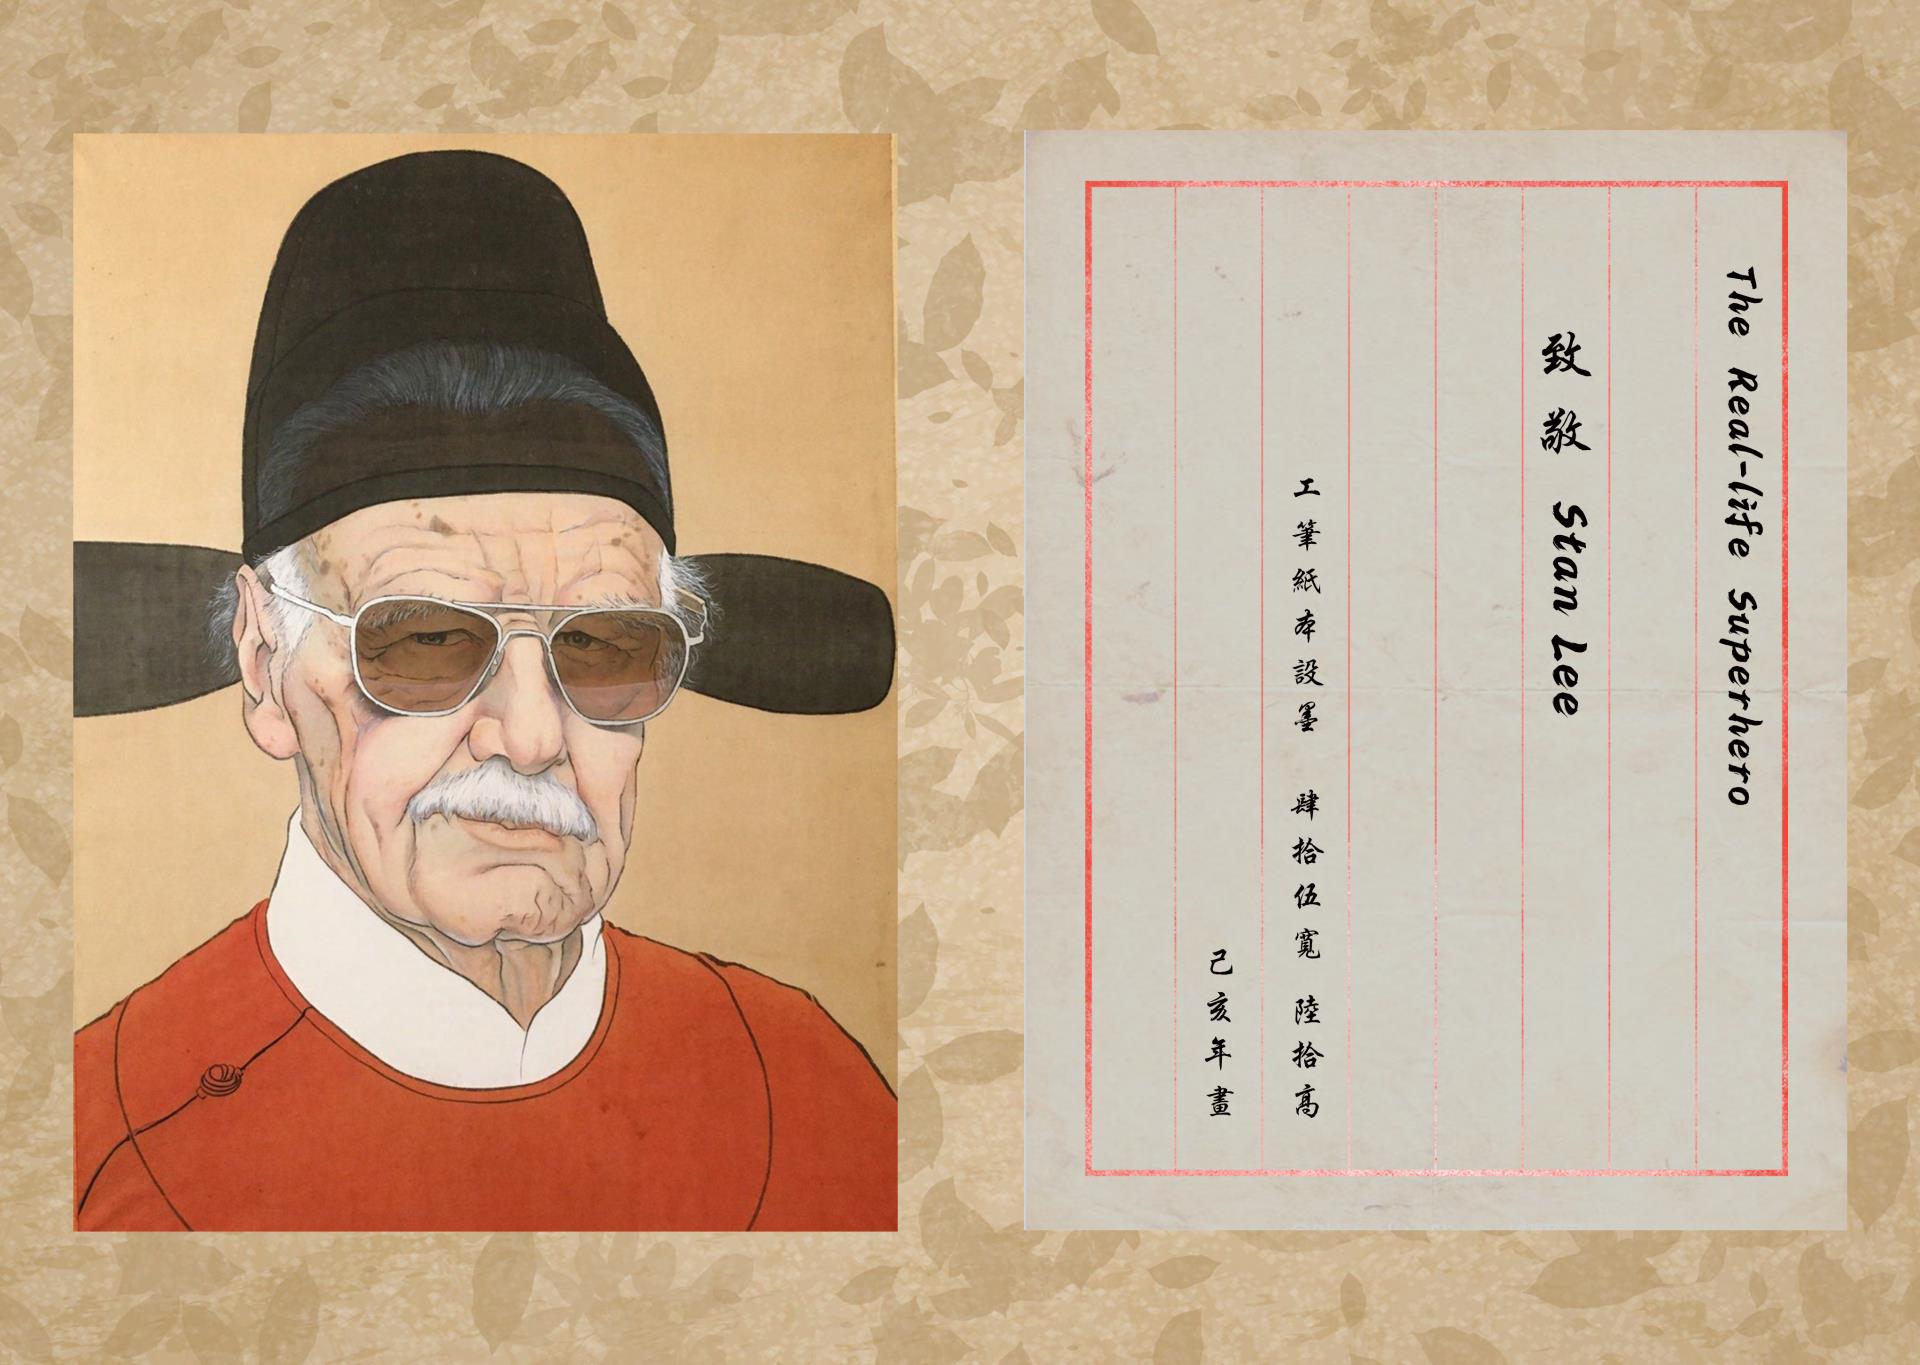 The Real-life Superhero
致敬 Stan Lee
工筆紙本設墨 肆拾伍寬 陸拾高
己亥年畫